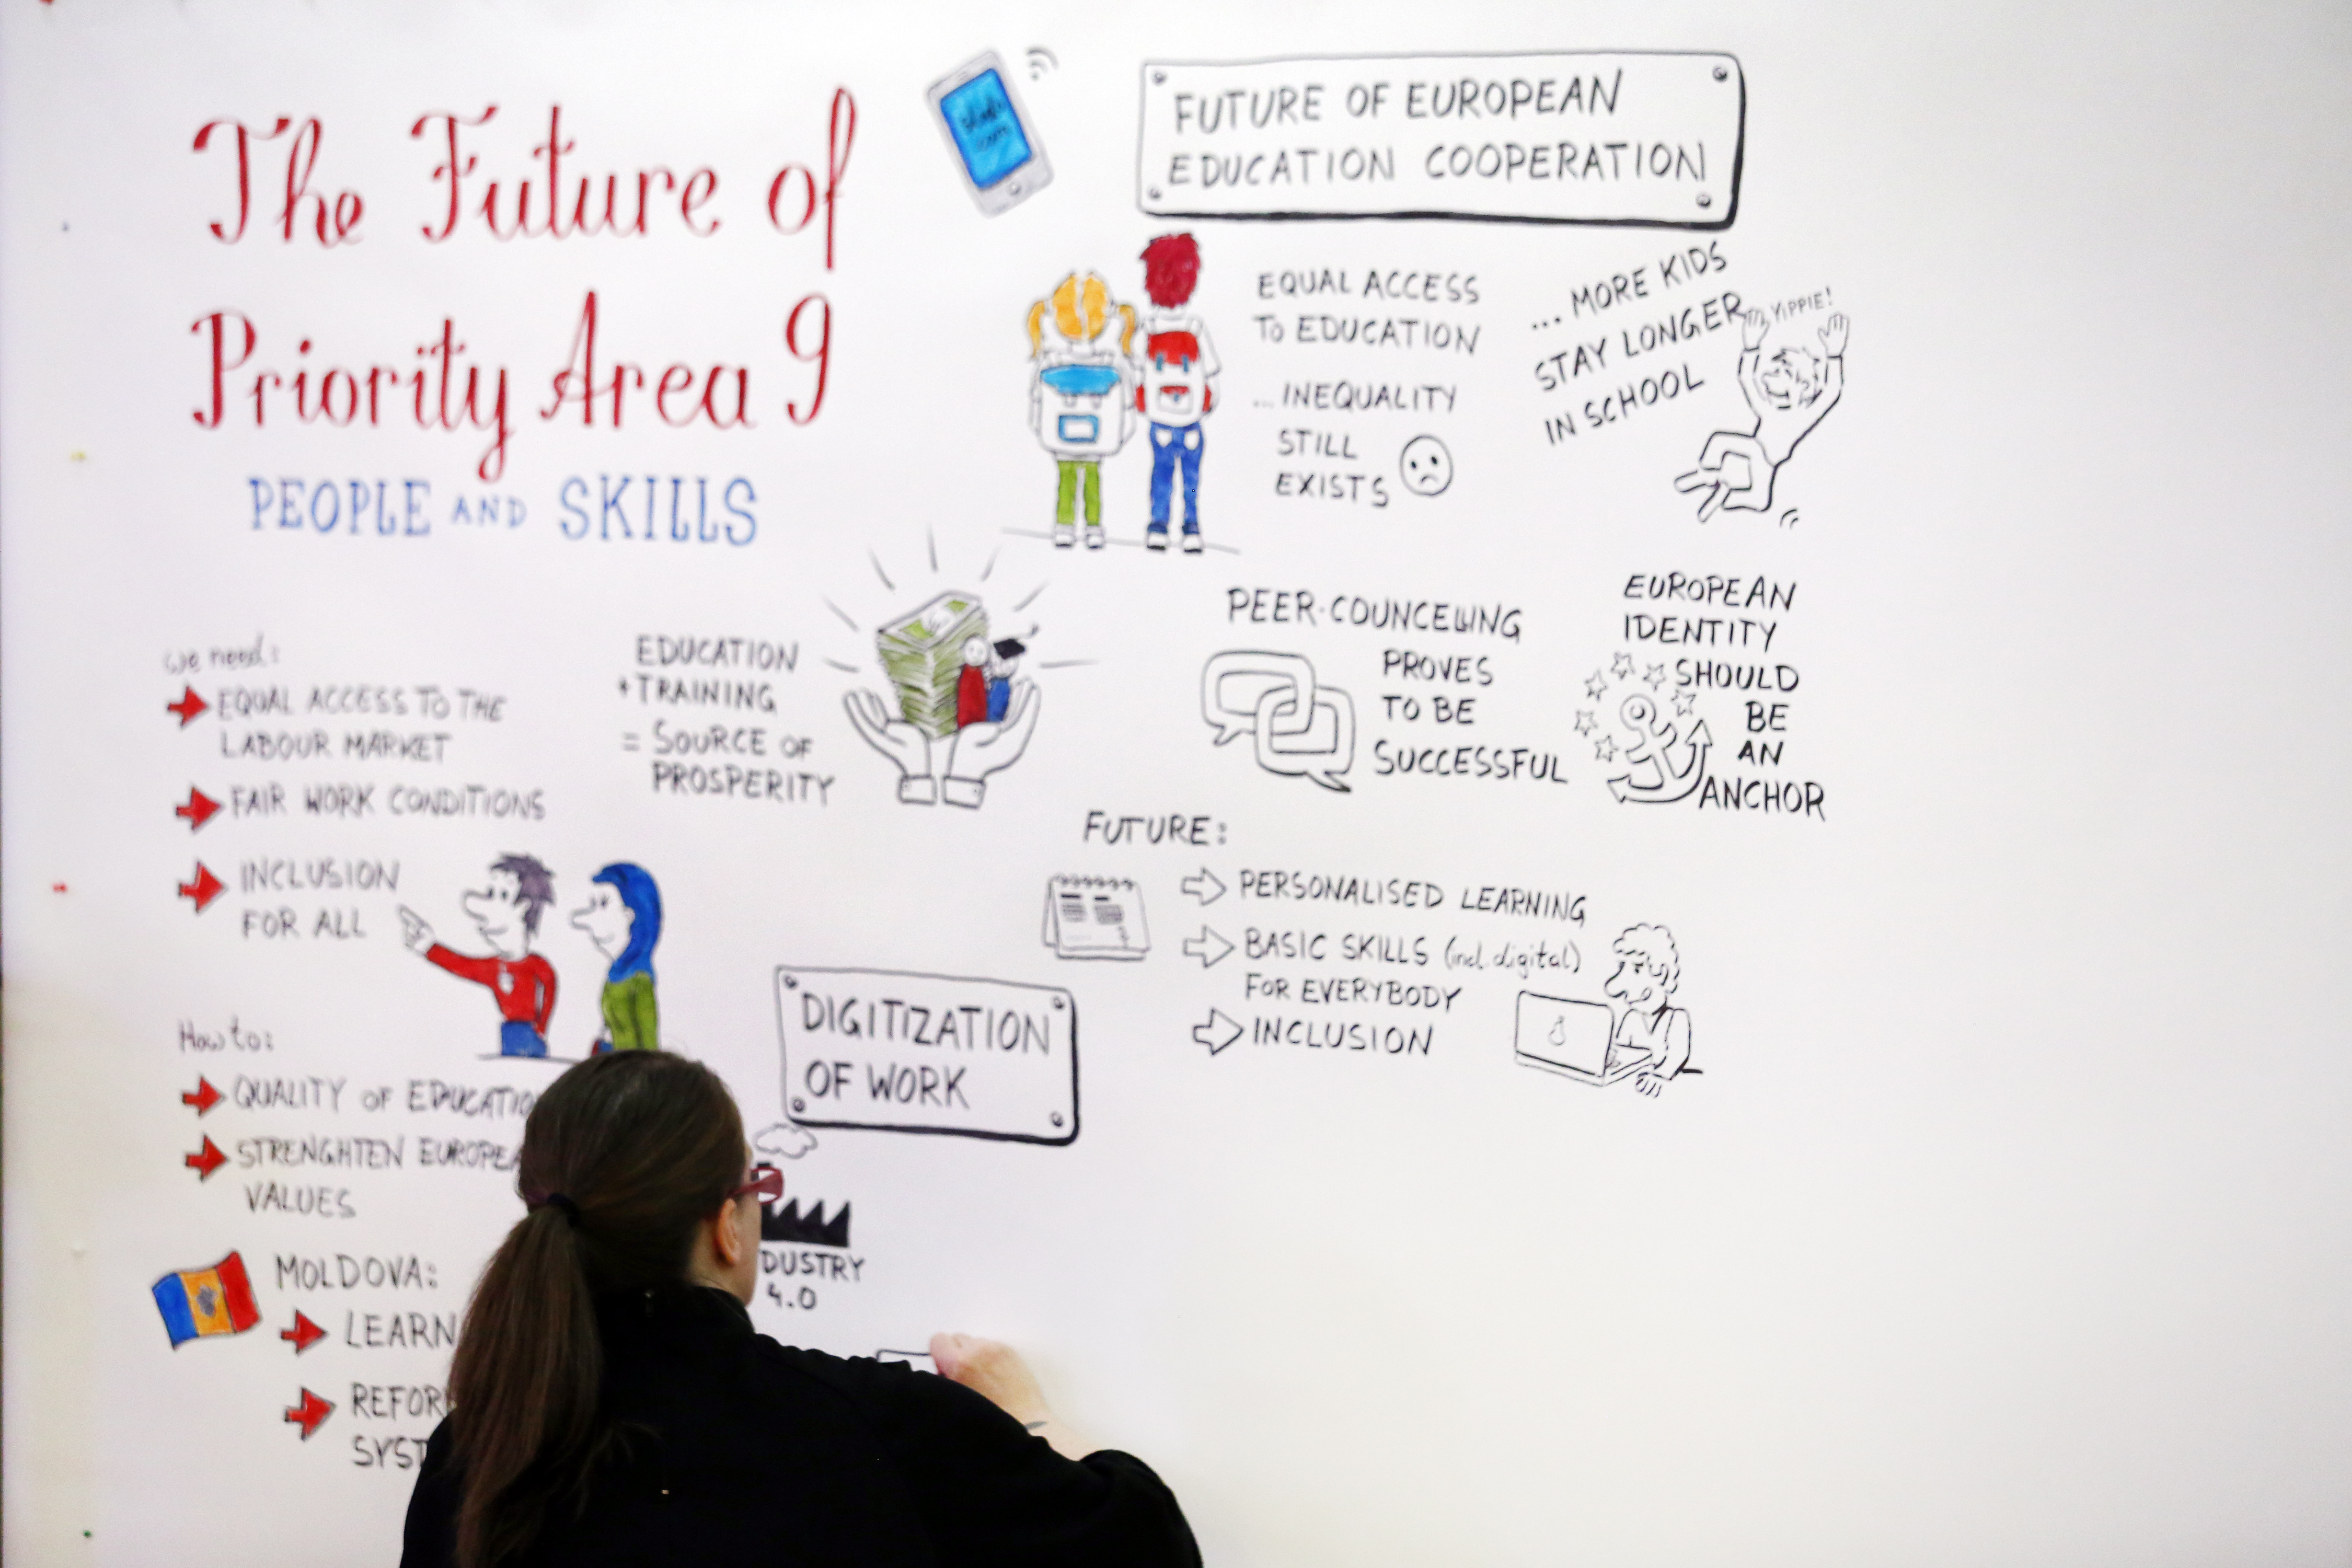 The Future of
Priority Area 9
PEOPLE AND SKILLS
we need:
EQUAL ACCESS TO THE
LABOUR MARKET
FAIR WORK CONDITIONS
INCLUSION
FOR ALL
EDUCATION
+ TRAINING
= SOURCE OF
PROSPERITY
How to:
QUALITY OF EDUCATIO
STRENGHTEN EUROPEA
VALUES
MOLDOVA:
LEARN
REFOR
SYST
DIGITIZATION
OF WORK
DUSTRY
4.0
FUTURE OF EUROPEAN
EDUCATION COOPERATION
EQUAL ACCESS
TO EDUCATION
...INEQUALITY
STILL
EXISTS
... MORE KIDS
STAY LONGER
IN SCHOOL
YIPPIE!
PEER-COUNCELLING
PROVES
TO BE
SUCCESSFUL
EUROPEAN
IDENTITY
SHOULD
BE
AN
ANCHOR
FUTURE:
PERSONALISED LEARNING
BASIC SKILLS (incl. digital)
FOR EVERYBODY
INCLUSION